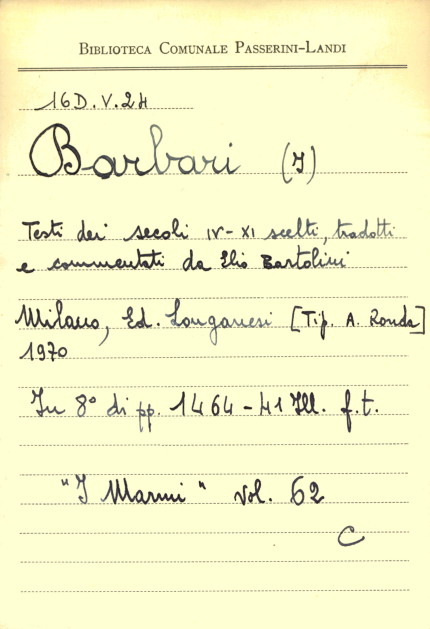 BIBLIOTECA COMUNALE PASSERINI-LANDI
16D.V.24
Barbari (I)
Testi dei secoli IV-XI scelti, tradotti
e commentati da Elio Bartolini
Milano, Ed. Longanesi [Tip. A. Ronda]
1970
In 8° di pp. 1464-41 Ill. f.t.
"I Marmi" vol. 62
C